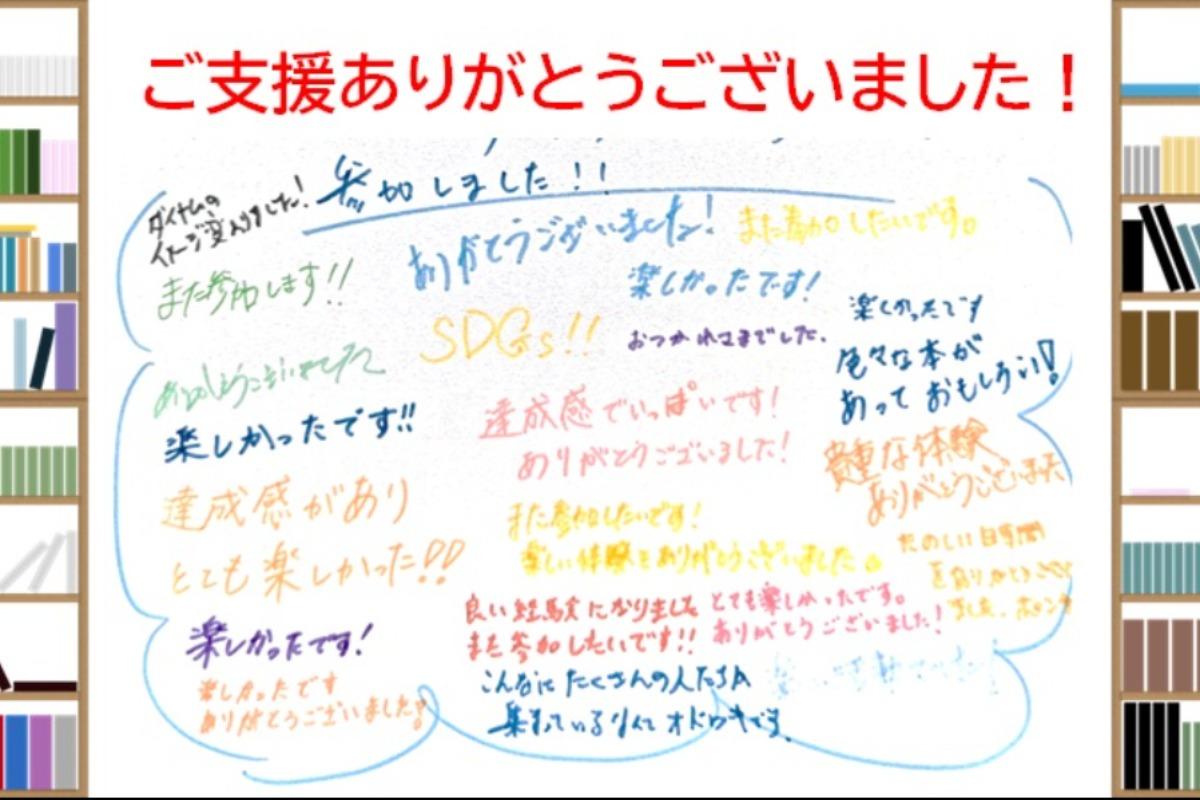 ご支援ありがとうございました！
参加しました！！
ダイナムの
イメージ変わりました！
ありがとうございました！
また参加したいです。
また参加します！！
楽しかったです！
SDGs!!
おつかれさまでした。
楽しかったです
色々な本が
あっておもしろい！
ありがとうございました
楽しかったです!!
達成感でいっぱいです！
ありがとうございました！
貴重な体験
ありがとうございました
達成感があり
とても楽しかった!!
また参加したいです！
楽しい体験をありがとうございました。
たのしい時間
をありがとうござい
ました。
良い経験になりました
また参加したいです!!
とても楽しかったです。
ありがとうございました！
楽しかったです！
楽しかったです
ありがとうございました！
こんなにたくさんの人たちが
集まっているなんてオドロキです。